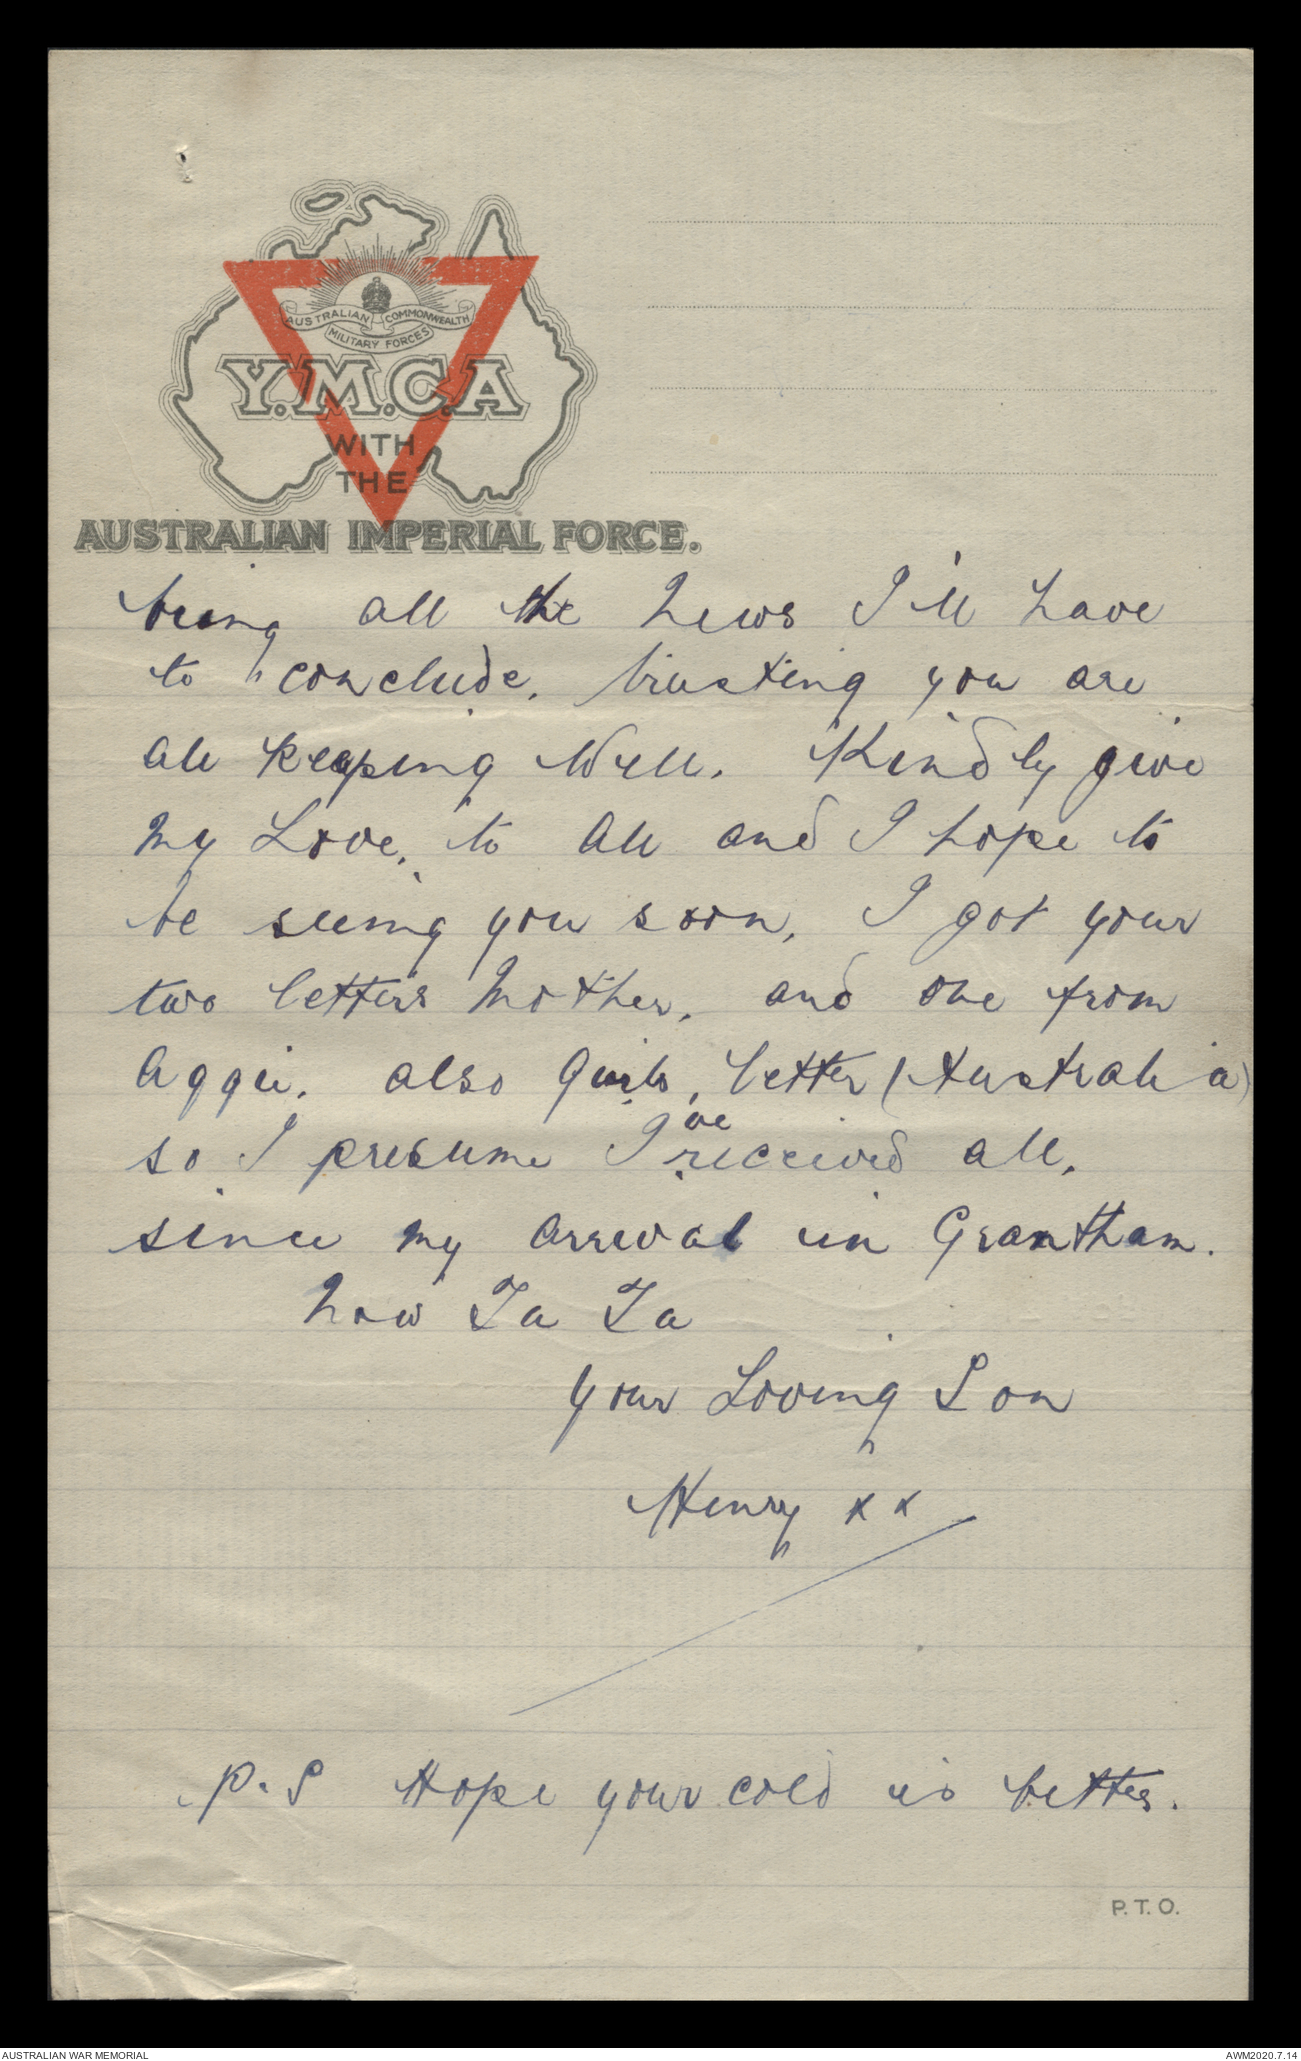 AUSTRALIAN COMMONWEALTH
MILITARY FORCES
Y.M.C.A
WITH
THE
AUSTRALIAN IMPERIAL FORCE.
being all the news I'll have
to conclude. trusting you are
all keeping Well. Kindly give
my Love, to all and I hope to
be seeing you soon, I got your
two letters Mother, and one from
Aggie. also letter (Australia)
so I presume I've received all,
since my arrival in Grantham.
Now Ta Ta
Your Loving Son
Henry x x
P.S Hope your cold is better.
P.T.O.
AUSTRALIAN WAR MEMORIAL
AWM2020.7.14